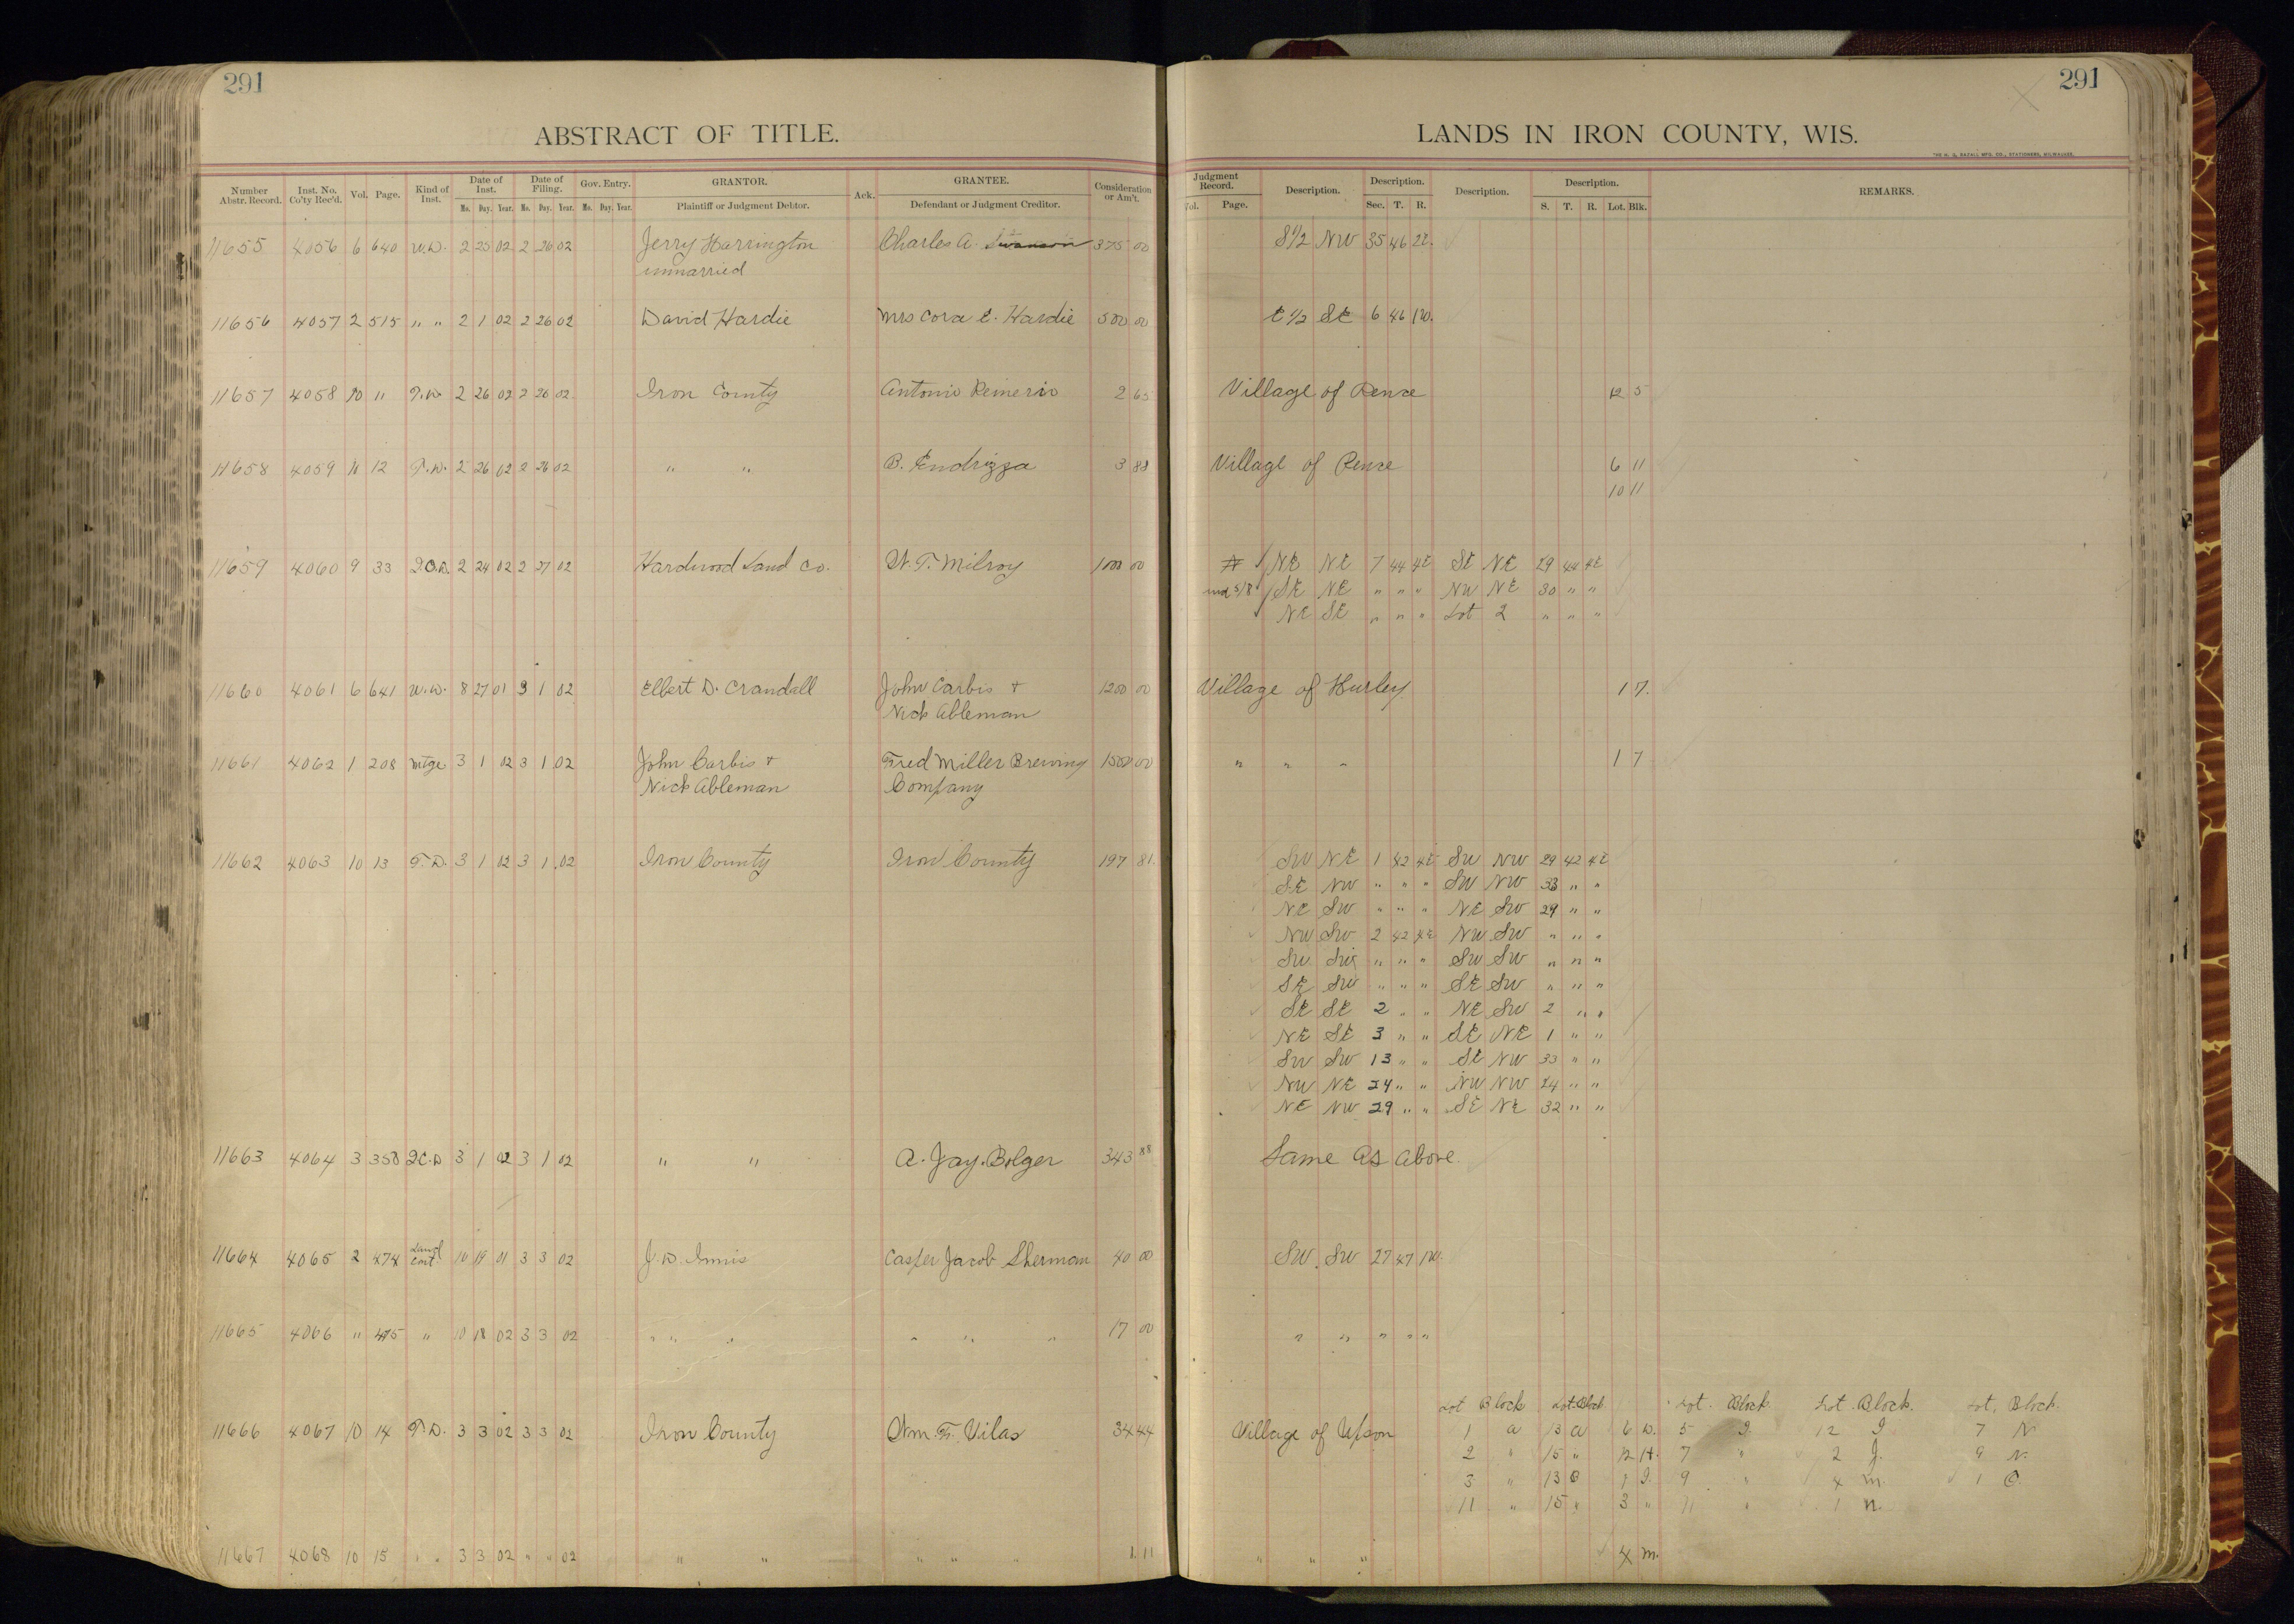 291
291
ABSTRACT OF TITLE.
LANDS IN IRON COUNTY, WIS.
THE H. G. RAZALL MFG. CO., STATIONERS, MILWAUKEE.
Number Abstr. Record. Inst. No. Co'ty Rec'd. Vol. Page. Kind of Inst. Date of Inst. Mo. Day. Year. Date of Filing. Mo. Day. Year. Gov. Entry. Mo. Day. Year. GRANTOR. Plaintiff or Judgment Debtor. Ack. GRANTEE. Defendant or Judgment Creditor. Consideration or Am't.
Judgment Record. Vol. Page. Description. Description. Sec. T. R. Description. Description. S. T. R. Lot. Blk. REMARKS.
11655 4056 6 640 W.D. 2 25 02 2 26 02 Jerry Harrington Charles A. Swanson 375 00 S 1/2 NW 35 46 2E.
unmarried
11656 4057 2 515 " " 2 1 02 2 26 02 David Hardie Mrs Cora E. Hardie 500 00 E 1/2 SE 6 46 1W.
11657 4058 10 11 T.D. 2 26 02 2 26 02 Iron County Antonio Reinerio 2 65 Village of Pence 12 5
11658 4059 10 12 T.D. 2 26 02 2 26 02 " " B. Endrizza 3 88 Village of Pence 6 11
10 11
11659 4060 9 33 Q.C.D. 2 24 02 2 27 02 Hardwood Land Co. W. T. Milroy 1000 00 NE NE 7 44 4E SE NE 29 44 4E
und 5/8 SE NE " " " NW NE 30 " "
NE SE " " " Lot 2 " " "
11660 4061 6 641 W.D. 8 27 01 3 1 02 Elbert D. Crandall John Carbis + 1200 00 Village of Hurley 1 7.
Nick Ableman
11661 4062 1 208 Mtge 3 1 02 3 1 02 John Carbis + Fred Miller Brewing 1500 00 " " " 1 7
Nick Ableman Company
11662 4063 10 13 T.D. 3 1 02 3 1 02 Iron County Iron County 197 81 SW NE 1 42 4E SW NW 29 42 4E
SE NW " " " SW NW 33 " "
NE SW " " " NE SW 29 " "
NW SW 2 42 4E NW SW " " "
SW SW " " " SW SW " " "
SE SW " " " SE SW " " "
SE SE 2 " " NE SW 2 " "
NE SE 3 " " SE NE 1 " "
SW SW 13 " " SE NW 33 " "
NW NE 24 " " NW NW 24 " "
NE NW 29 " " SE NE 32 " "
11663 4064 3 358 Q.C.D 3 1 02 3 1 02 " " A. Jay. Bolger 343 88 Same As Above.
11664 4065 2 474 Land Cont. 10 19 01 3 3 02 J. D. Innis Casper Jacob Sherman 40 00 SW SW 27 47 1W.
11665 4066 " 475 " 10 18 02 3 3 02 " " " " " " 17 00 " " " " "
Lot Block Lot Block Lot. Block. Lot. Block. Lot. Block.
11666 4067 10 14 T.D. 3 3 02 3 3 02 Iron County Wm. F. Vilas 34 44 Village of Upson 1 a 13 a 6 D. 5 I. 12 I 7 N
2 " 15 " 12 H. 7 " 2 J. 9 N.
3 " 13 B 1 I. 9 " 4 M. 1 O.
11 " 15 " 3 " 11 " 1 N.
11667 4068 10 15 " " 3 3 02 " " 02 " " " " " 1.11 " " " 4 M.